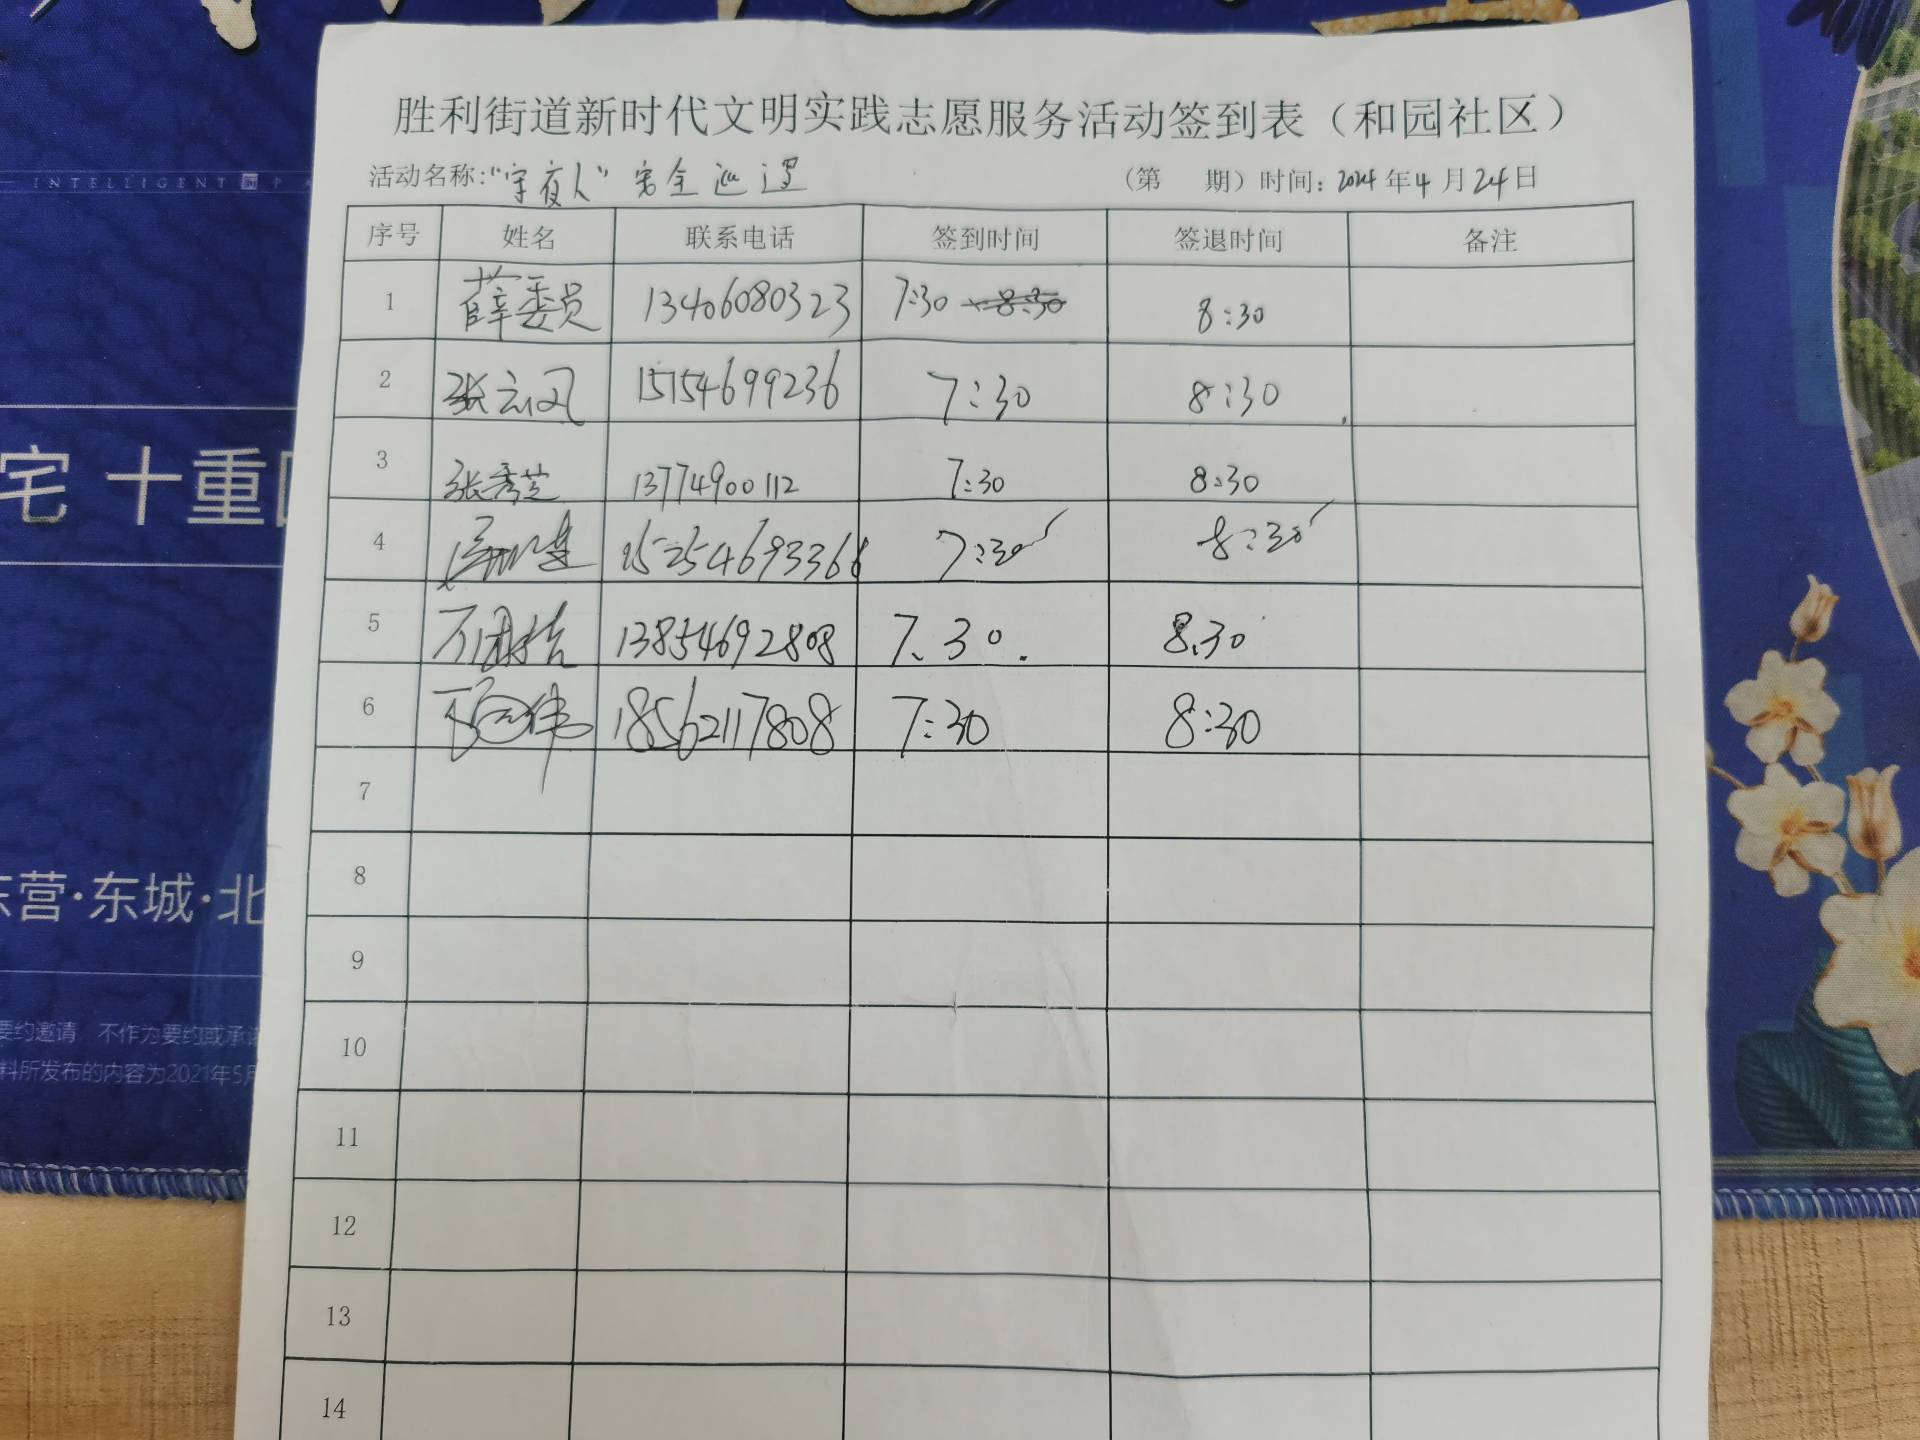 INTELLIGENT PA
宅 十重
东营·东城·北
要约邀请 不作为要约或承诺
料所发布的内容为2021年5月
胜利街道新时代文明实践志愿服务活动签到表（和园社区）
活动名称:“守夜人”安全巡逻 （第 期）时间: 2024年4月24日
序号 姓名 联系电话 签到时间 签退时间 备注
1 薛委员 13406080323 7:30 8:30 8:30
2 张云风 15154699236 7:30 8:30
3 张秀芝 13774900112 7:30 8:30
4 15254693366 7:30 8:30
5 13854692808 7.30. 8.30
6 18562117808 7:30 8:30
7
8
9
10
11
12
13
14